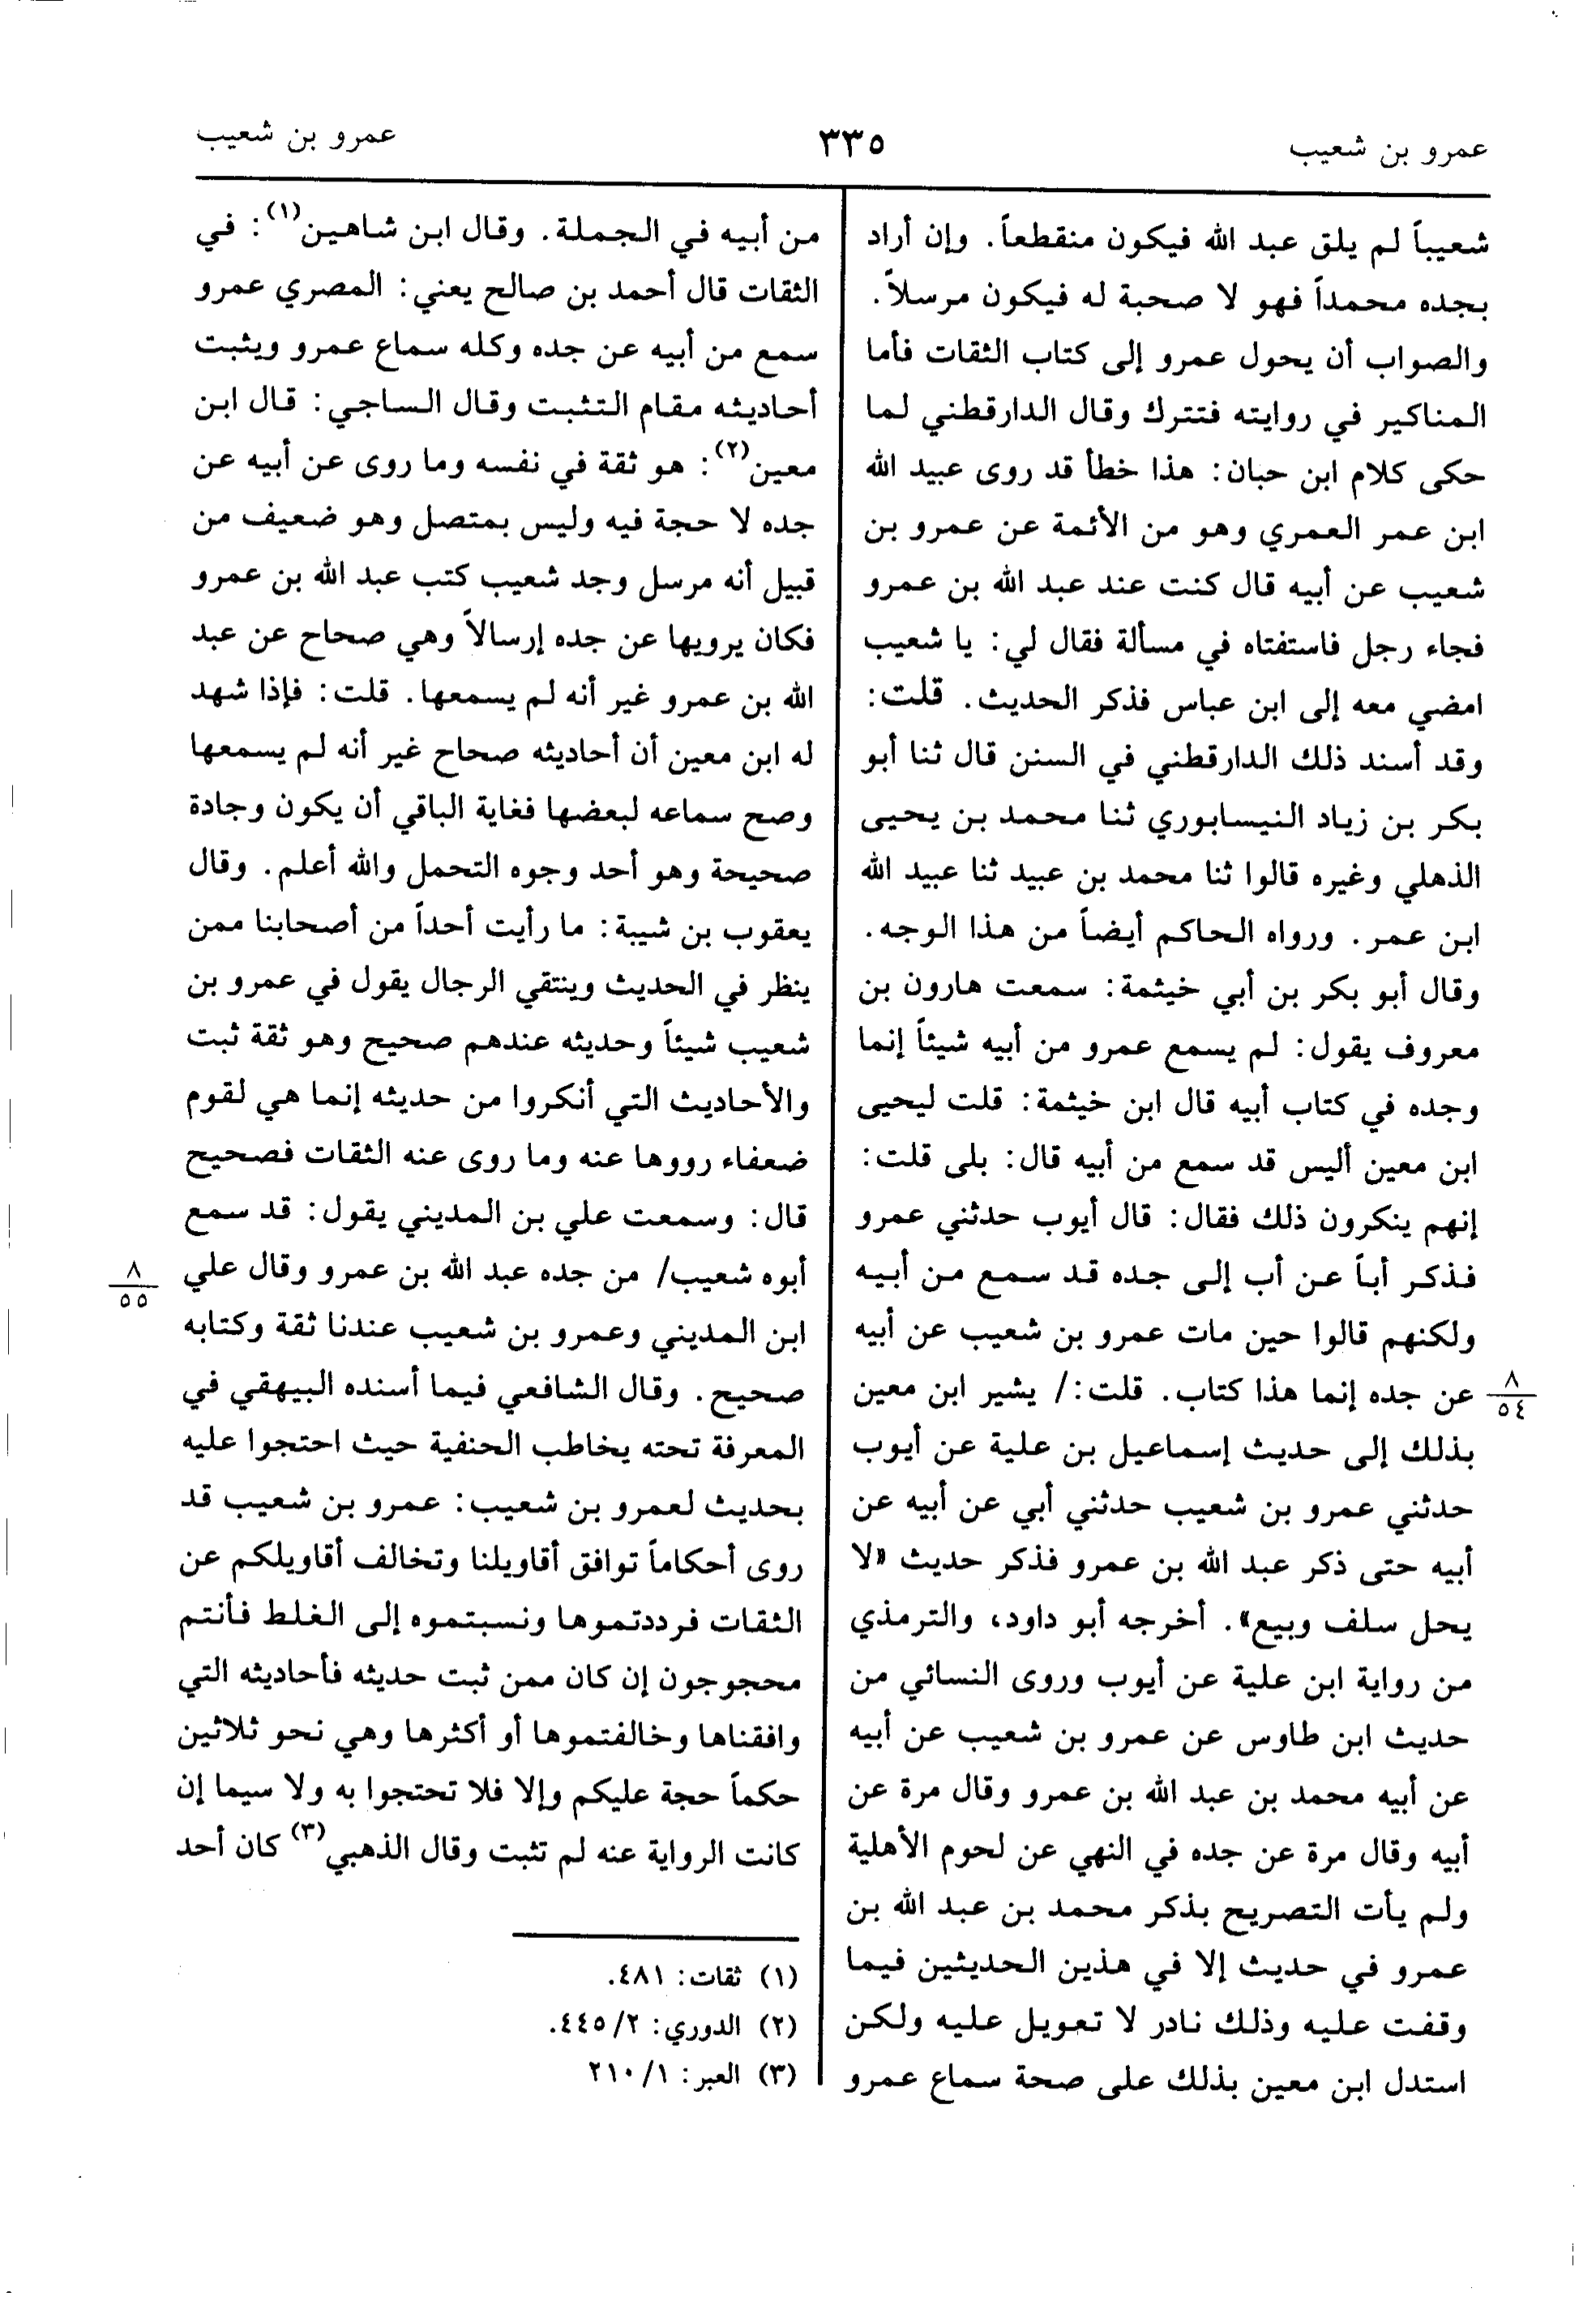 عمرو بن شعيب
٣٣٥
عمرو بن شعيب
شعيباً لم يلق عبد الله فيكون منقطعاً. وإن أراد
بجده محمداً فهو لا صحبة له فيكون مرسلاً.
والصواب أن يحول عمرو إلى كتاب الثقات فأما
المناكير في روايته فتترك وقال الدارقطني لما
حكى كلام ابن حبان: هذا خطأ قد روى عبيد الله
ابن عمر العمري وهو من الأئمة عن عمرو بن
شعيب عن أبيه قال كنت عند عبد الله بن عمرو
فجاء رجل فاستفتاه في مسألة فقال لي: يا شعيب
امضي معه إلى ابن عباس فذكر الحديث. قلت:
وقد أسند ذلك الدارقطني في السنن قال ثنا أبو
بكر بن زياد النيسابوري ثنا محمد بن يحيى
الذهلي وغيره قالوا ثنا محمد بن عبيد ثنا عبيد الله
ابن عمر. ورواه الحاكم أيضاً من هذا الوجه.
وقال أبو بكر بن أبي خيثمة: سمعت هارون بن
معروف يقول: لم يسمع عمرو من أبيه شيئاً إنما
وجده في كتاب أبيه قال ابن خيثمة: قلت ليحيى
ابن معين أليس قد سمع من أبيه قال: بلى قلت:
إنهم ينكرون ذلك فقال: قال أيوب حدثني عمرو
فذكر أباً عن أب إلى جده قد سمع من أبيه
ولكنهم قالوا حين مات عمرو بن شعيب عن أبيه
عن جده إنما هذا كتاب. قلت:/ يشير ابن معين
٨
٥٤
بذلك إلى حديث إسماعيل بن علية عن أيوب
حدثني عمرو بن شعيب حدثني أبي عن أبيه عن
أبيه حتى ذكر عبد الله بن عمرو فذكر حديث «لا
يحل سلف وبيع». أخرجه أبو داود، والترمذي
من رواية ابن علية عن أيوب وروى النسائي من
حديث ابن طاوس عن عمرو بن شعيب عن أبيه
عن أبيه محمد بن عبد الله بن عمرو وقال مرة عن
أبيه وقال مرة عن جده في النهي عن لحوم الأهلية
ولم يأت التصريح بذكر محمد بن عبد الله بن
عمرو في حديث إلا في هذين الحديثين فيما
وقفت عليه وذلك نادر لا تعويل عليه ولكن
استدل ابن معين بذلك على صحة سماع عمرو
من أبيه في الجملة. وقال ابن شاهين(١): في
الثقات قال أحمد بن صالح يعني: المصري عمرو
سمع من أبيه عن جده وكله سماع عمرو ويثبت
أحاديثه مقام التثبت وقال الساجي: قال ابن
معين(٢): هو ثقة في نفسه وما روى عن أبيه عن
جده لا حجة فيه وليس بمتصل وهو ضعيف من
قبيل أنه مرسل وجد شعيب كتب عبد الله بن عمرو
فكان يرويها عن جده إرسالاً وهي صحاح عن عبد
الله بن عمرو غير أنه لم يسمعها. قلت: فإذا شهد
له ابن معين أن أحاديثه صحاح غير أنه لم يسمعها
وصح سماعه لبعضها فغاية الباقي أن يكون وجادة
صحيحة وهو أحد وجوه التحمل والله أعلم. وقال
يعقوب بن شيبة: ما رأيت أحداً من أصحابنا ممن
ينظر في الحديث وينتقي الرجال يقول في عمرو بن
شعيب شيئاً وحديثه عندهم صحيح وهو ثقة ثبت
والأحاديث التي أنكروا من حديثه إنما هي لقوم
ضعفاء رووها عنه وما روى عنه الثقات فصحيح
قال: وسمعت علي بن المديني يقول: قد سمع
أبوه شعيب/ من جده عبد الله بن عمرو وقال علي
٨
٥٥
ابن المديني وعمرو بن شعيب عندنا ثقة وكتابه
صحيح. وقال الشافعي فيما أسنده البيهقي في
المعرفة تحته يخاطب الحنفية حيث احتجوا عليه
بحديث لعمرو بن شعيب: عمرو بن شعيب قد
روى أحكاماً توافق أقاويلنا وتخالف أقاويلكم عن
الثقات فرددتموها ونسبتموه إلى الغلط فأنتم
محجوجون إن كان ممن ثبت حديثه فأحاديثه التي
وافقناها وخالفتموها أو أكثرها وهي نحو ثلاثين
حكماً حجة عليكم وإلا فلا تحتجوا به ولا سيما إن
كانت الرواية عنه لم تثبت وقال الذهبي(٣) كان أحد
(١) ثقات: ٤٨١.
(٢) الدوري: ٤٤٥/٢.
(٣) العبر: ٢١٠/١